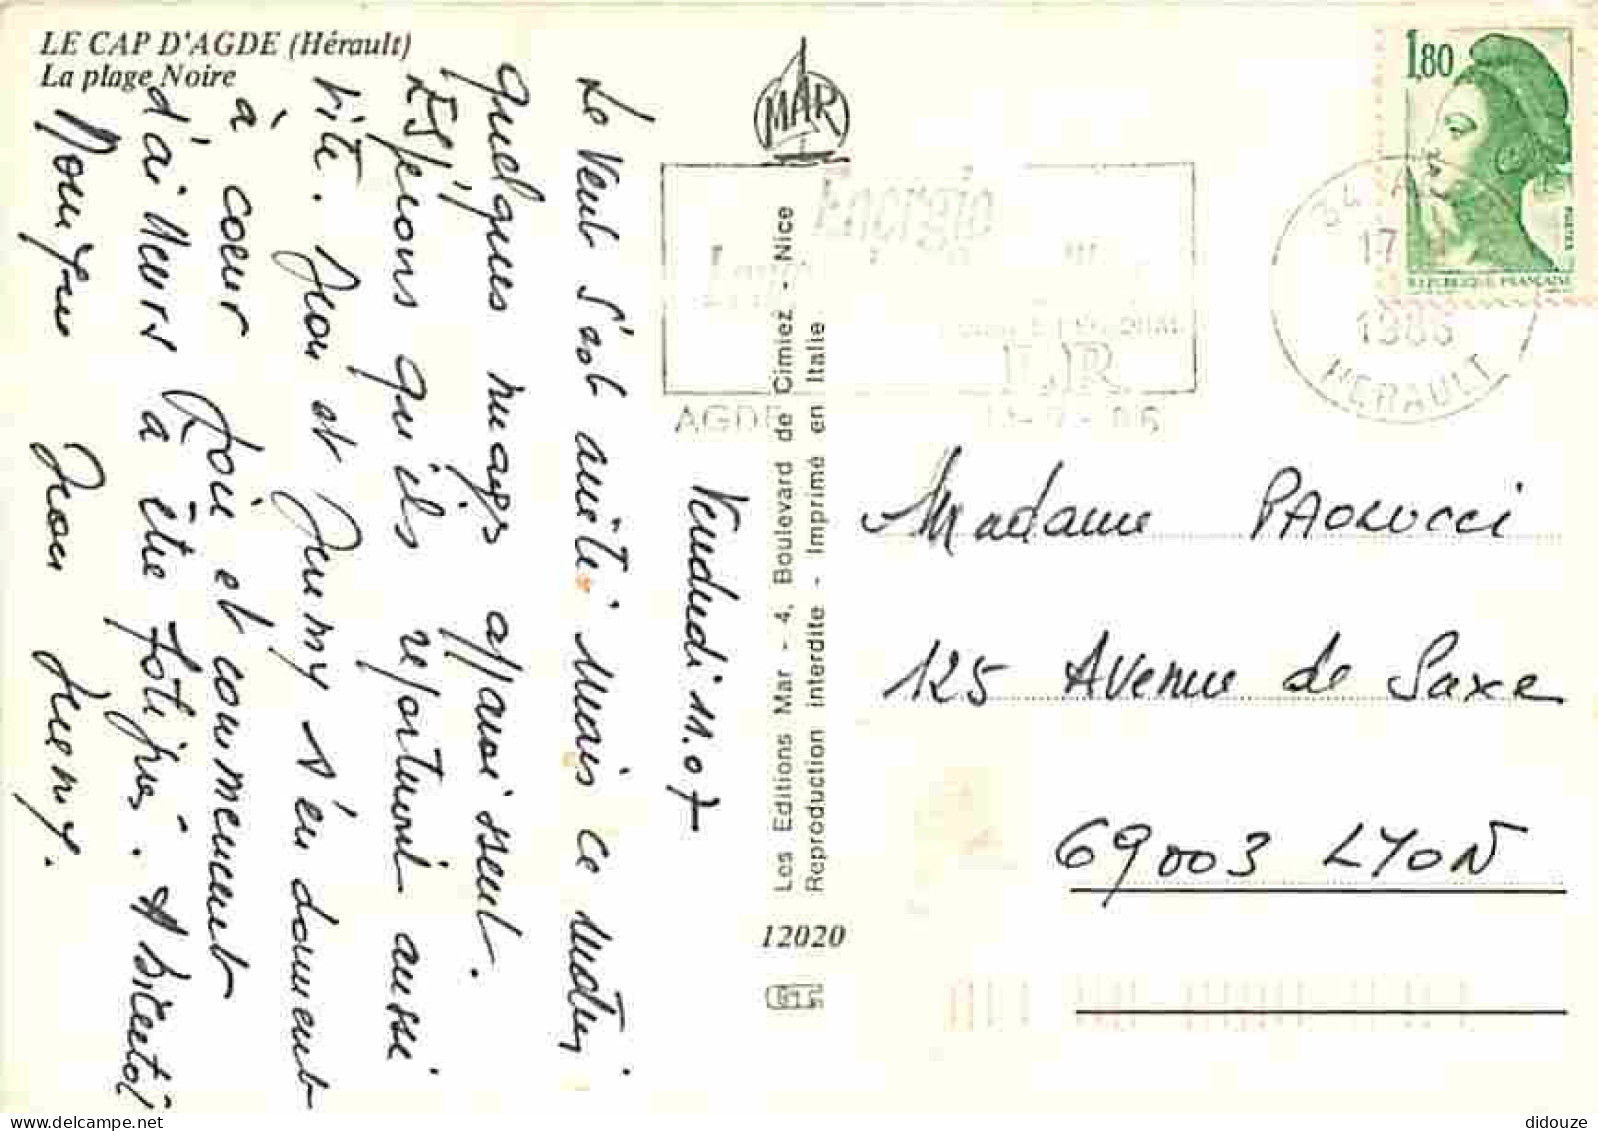 LE CAP D'AGDE (Hérault)
La plage Noire
Vendredi 11.07
Le Vent s'est arrêté mais ce matin
quelques nuages apparaissent.
Espérons qu'ils repartiront aussi
vite. Jean et Jimmy s'en donnent
à coeur joie et commencent
d'ailleurs à être fatigués. A bientôt
MAR
Les Editions Mar - 4, Boulevard de Cimiez - Nice
Reproduction interdite - Imprimé en Italie
12020
Energie
AGDE
1,80
POSTES
REPUBLIQUE FRANÇAISE
17
1986
HERAULT
Madame PAOLUCCI
125 Avenue de Saxe
69003 LYON
didouze